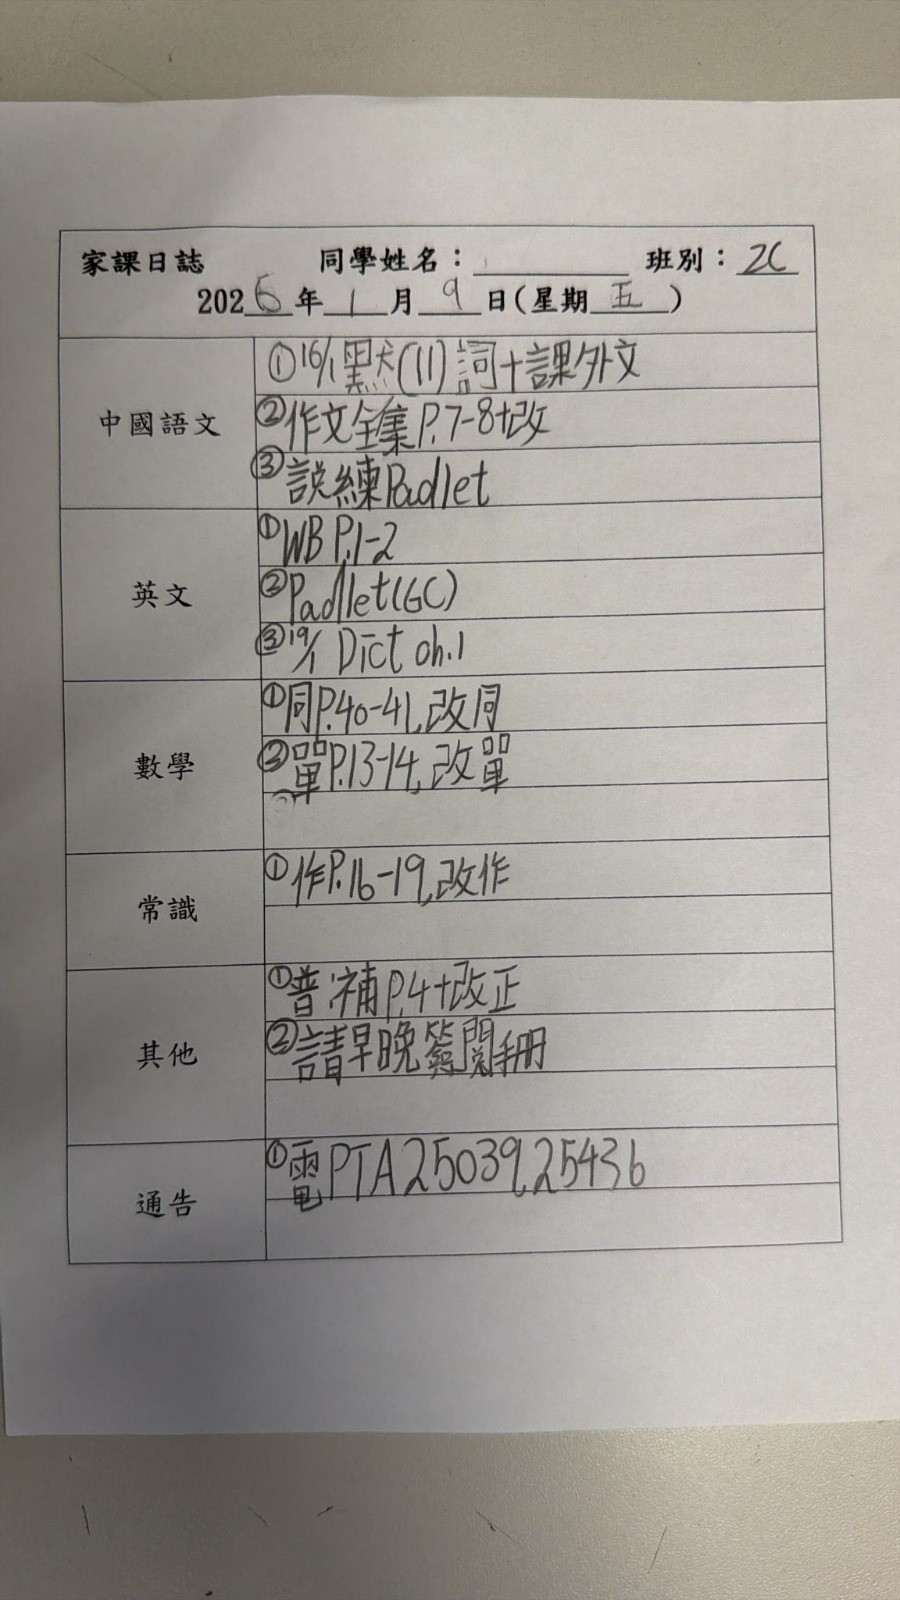 家課日誌 同學姓名： 班別：2C
2026年1月9日(星期五)
中國語文
①16/1默(11)詞+課外文
②作文全集P.7-8+改
③說練Padlet
英文
①WB P.1-2
②Padlet(GC)
③19/1 Dict ch.1
數學
①同P.40-41,改同
②單P.13-14,改單
常識
①作P.16-19,改作
其他
①普補P.4+改正
②請早晚簽閱手冊
通告
①電PTA25039,25436